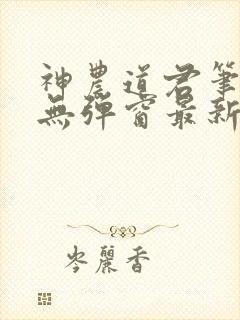 神農道君筆
無彈窗最新
岑麗香